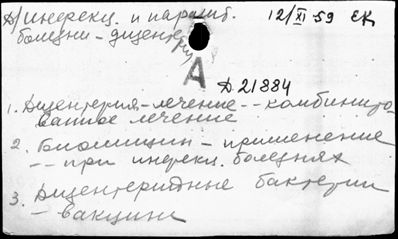 А/инфекц. и паразит. 12/XI 59 ЕК
болезни - дизентерия
А
Д 21884
1. Дизентерия - лечение -- комбиниро-
ванное лечение
2. Биомицин - применение
-- при инфекц. болезнях
3. Дизентерийные бактерии
- вакцины